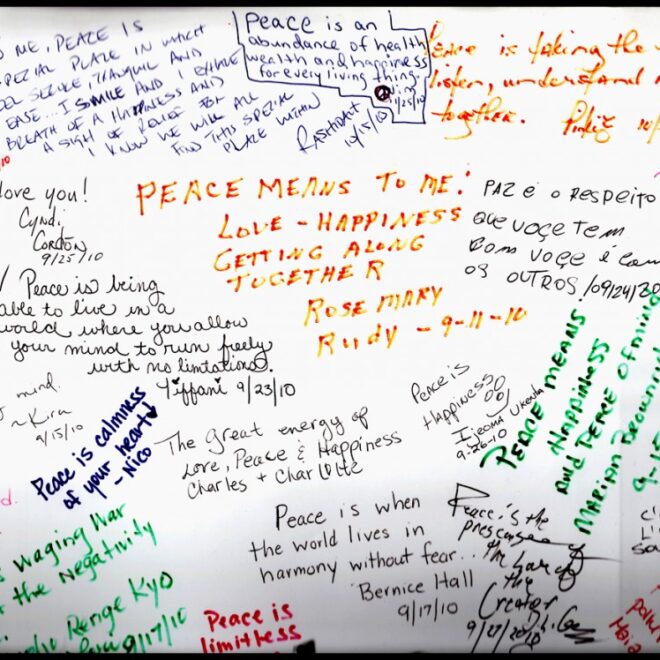 ME, PEACE IS
SPECIAL PLACE IN WHICH
SECURE, TRANQUIL AND
EASE... I SMILE AND I EXHALE
BREATH OF A HAPPINESS AND
A SIGH OF RELIEF FOR
I KNOW WE WILL ALL
FIND THIS SPECIAL
PLACE WITHIN
RASHIDAH
10/15/10
Peace is an
abundance of health
wealth and happiness
for every living thing.
/25/10
Peace is taking the
listen, understand
together.
10/
love you!
Cyndi
Cordon
9/25/10
PEACE MEANS TO ME:
LOVE - HAPPINESS
GETTING ALONG
TOGETHER
ROSE MARY
Rudy - 9-11-10
PAZ É O RESPEITO
QUE VOÇE TEM
COM VOÇE É COM
OS OUTROS! 109/24/20
Peace is being
able to live in a
world where you allow
your mind to run freely
with no limitations.
Tiffani 9/23/10
mind.
~ Kira
9/15/10
Peace is calmness
of your heart
- Nico
The Great energy of
Love, Peace & Happiness
Charles + Charlotte
Peace is
Happiness
Ijeoma Ukenta
9-26-10
PEACE MEANS
HAPPINESS
AND PEACE OF MIND
MARIAN BROWN
9-15
Waging War
the Negativity
Renge Kyo
9/17/10
Peace is
limitless
Peace is when
the world lives in
harmony without fear...
Bernice Hall
9/17/10
Peace is the
presence of
the Love of
the
Creator
9/27/2010